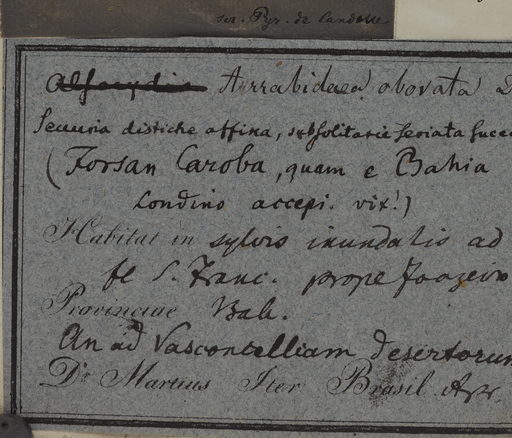 ser. Pyr. de Candolle
Arrabidaea obovata
Secunia disticha affina, subsolitarie seriata
(Forsan Caroba, quam e Bahia
Londino accepi. vix!)
Habitat in sylvis inundatis ad
fl S. Franc. prope Joazeiro
Provinciae Bah.
An ad Vasconcelliam desertorum
Dr. Martius Iter Brasil. Apr.